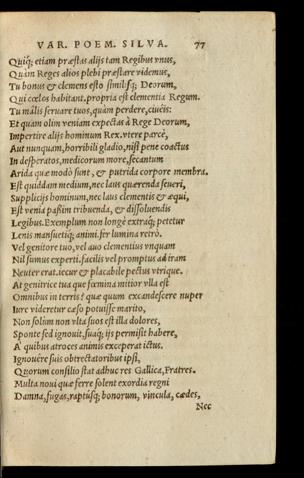 VAR. POEM. SILVA. 77
Quiq; etiam præstas alijs tam Regibus vnus,
Quàm Reges alios plebi præstare videmus,
Tu bonus & clemens esto similisq; Deorum,
Qui cœlos habitant, propria est clementia Regum.
Tu mâlis seruare tuos, quàm perdere, ciueis:
Et quam olim veniam expectas à Rege Deorum,
Impertire alijs hominum Rex. vtere parcè,
Aut nunquam, horribili gladio, nisi pene coactus
In desperatos, medicorum more, secantum
Arida quæ modò sunt, & putrida corpore membra.
Est quiddam medium, nec laus quærenda seueri,
Supplicijs hominum, nec laus clementis & æqui,
Est venia passim tribuenda, & dissoluendis
Legibus. Exemplum non longè extraq; petetur
Lenis mansuetiq; animi. fer lumina retrò.
Vel genitore tuo, vel auo clementius vnquam
Nil sumus experti. facilis vel promptus ad iram
Neuter erat. iecur & placabile pectus vtrique.
At genitrice tua quæ fœmina mitior vlla est
Omnibus in terris? quæ quum excandescere nuper
Iure videretur cæso potuisse marito,
Non solùm non vlta suos est illa dolores,
Sponte sed ignouit, suaq; ijs permisit habere,
A' quibus atroces animis exceperat ictus.
Ignouêre suis obtrectatoribus ipsi,
Quorum consilio stat adhuc res Gallica, Fratres.
Multa noui quæ ferre solent exordia regni
Damna, fugas, raptúsq; bonorum, vincula, cædes,
Nec